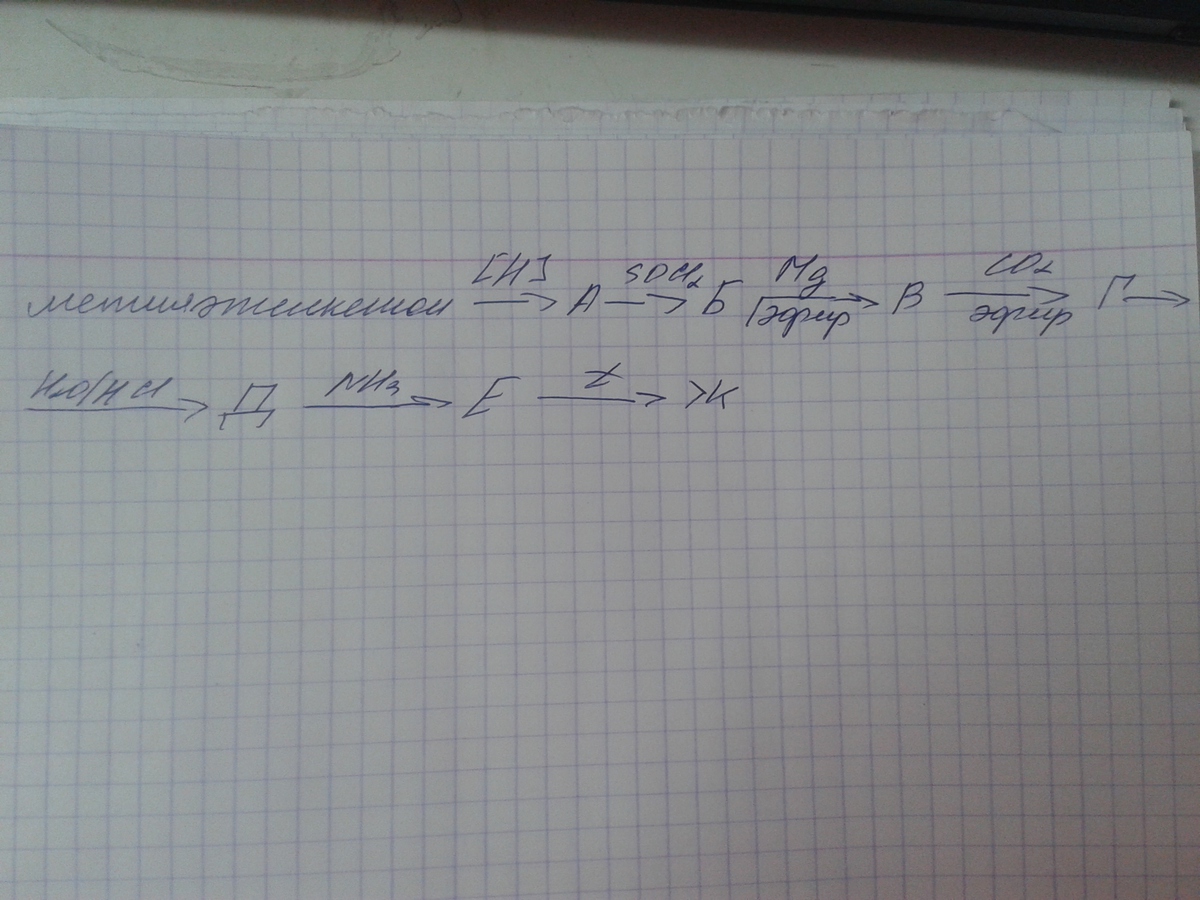 метилэтилкетон [H] → А SOCl₂ → Б Mg / эфир → В CO₂ / эфир → Г →
H₂O/HCl → Д NH₃ → Е t → Ж